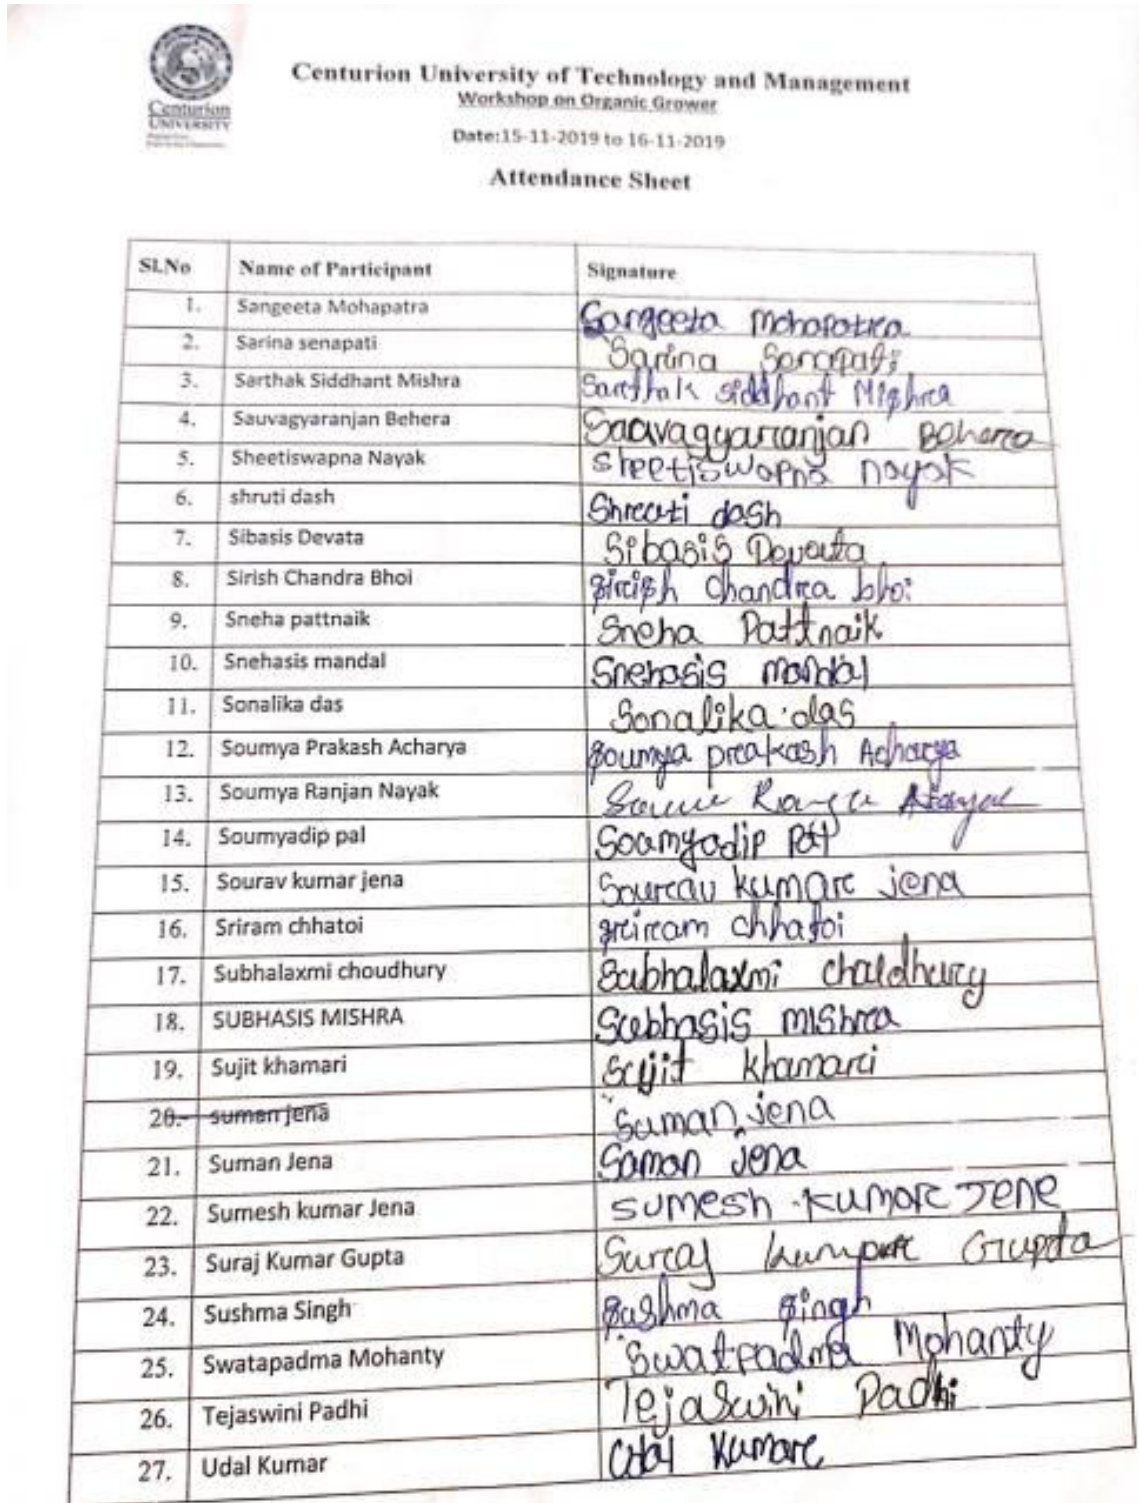 Centurion
UNIVERSITY
Centurion University of Technology and Management
Workshop on Organic Grower
Date:15-11-2019 to 16-11-2019
Attendance Sheet
Sl.No Name of Participant Signature
1. Sangeeta Mohapatra Sangeeta Mohapatra
2. Sarina senapati Sarina Senapati
3. Sarthak Siddhant Mishra Sarthak siddhant Mishra
4. Sauvagyaranjan Behera Sauvagyaranjan Behera
5. Sheetiswapna Nayak sheetiswapna nayak
6. shruti dash Shruti dash
7. Sibasis Devata Sibasis Devata
8. Sirish Chandra Bhoi Sirish Chandra bhoi
9. Sneha pattnaik Sneha Pattnaik
10. Snehasis mandal Snehasis mandal
11. Sonalika das Sonalika das
12. Soumya Prakash Acharya Soumya prakash Acharya
13. Soumya Ranjan Nayak
14. Soumyadip pal Soumyadip pal
15. Sourav kumar jena Sourav kumar jena
16. Sriram chhatoi sriram chhatoi
17. Subhalaxmi choudhury Subhalaxmi choudhury
18. SUBHASIS MISHRA Subhasis mishra
19. Sujit khamari Sujit khamari
20. suman jena Suman jena
21. Suman Jena Suman Jena
22. Sumesh kumar Jena SUMESH KUMAR JENE
23. Suraj Kumar Gupta Suraj kumar Gupta
24. Sushma Singh Sushma Singh
25. Swatapadma Mohanty Swatpadma Mohanty
26. Tejaswini Padhi Tejaswini Padhi
27. Udal Kumar Udal Kumar